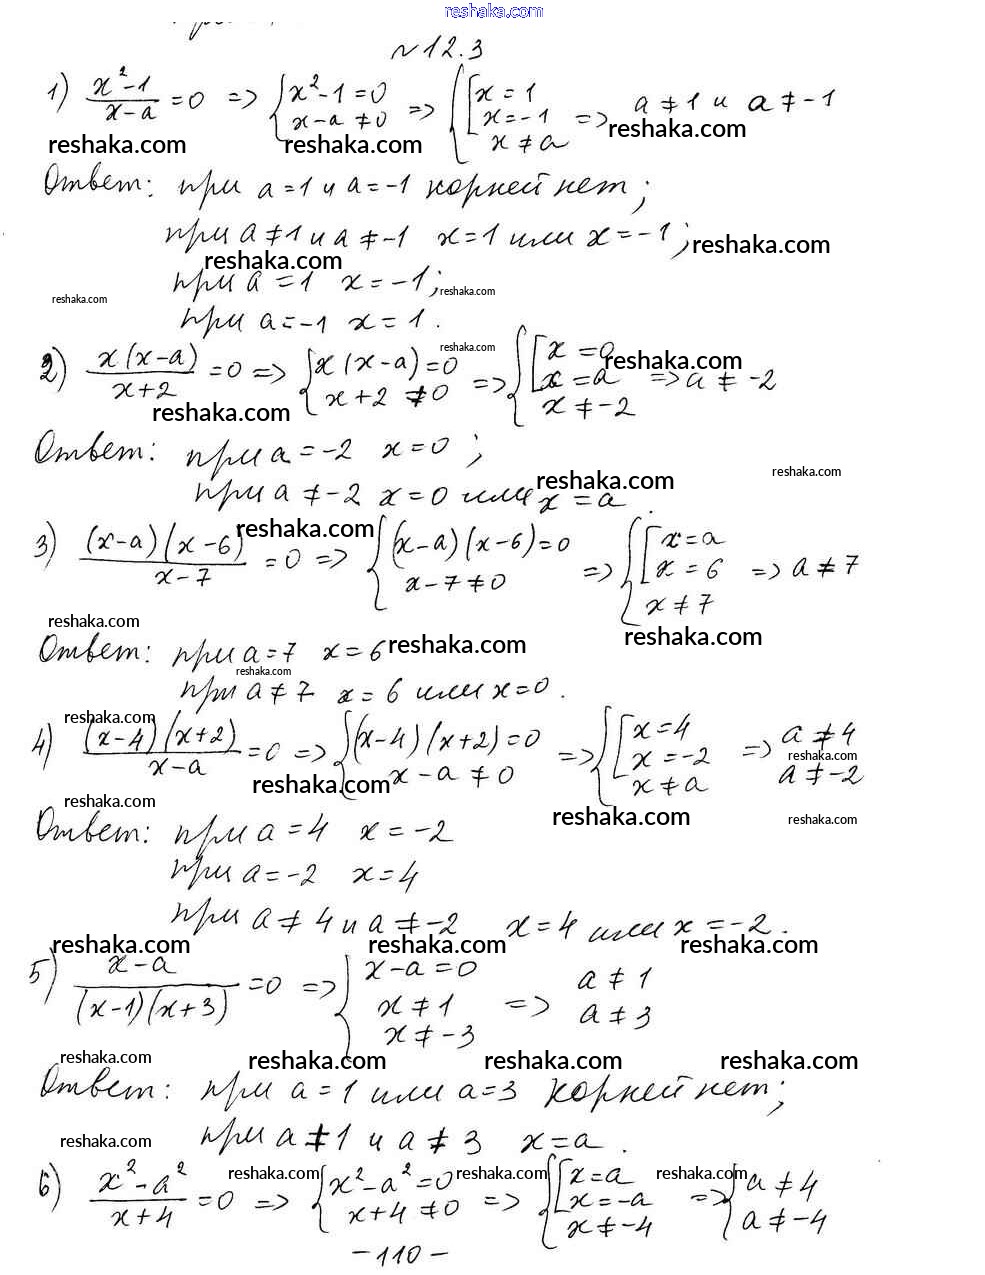 reshaka.com
№12.3
1) (x²-1)/(x-a) = 0 => { x²-1=0 x-a≠0 => { [ x=1 x=-1 x≠a => a≠1 и a≠-1
reshaka.com reshaka.com reshaka.com
Ответ: при a=1 и a=-1 корней нет;
при a≠1 и a≠-1 x=1 или x=-1; reshaka.com
reshaka.com
при a=1 x=-1; reshaka.com
reshaka.com
при a=-1 x=1.
reshaka.com
2) x(x-a)/(x+2) = 0 => { x(x-a)=0 x+2≠0 => { [ x=0 x=a x≠-2 => a≠-2
reshaka.com reshaka.com
Ответ: при a=-2 x=0;
reshaka.com reshaka.com
при a≠-2 x=0 или x=a.
reshaka.com
3) (x-a)(x-6)/(x-7) = 0 => { (x-a)(x-6)=0 x-7≠0 => { [ x=a x=6 x≠7 => a≠7
reshaka.com reshaka.com
Ответ: при a=7 x=6 reshaka.com
reshaka.com
при a≠7 x=6 или x=0.
reshaka.com
4) (x-4)(x+2)/(x-a) = 0 => { (x-4)(x+2)=0 x-a≠0 => { [ x=4 x=-2 x≠a => a≠4 a≠-2
reshaka.com reshaka.com
reshaka.com reshaka.com reshaka.com
Ответ: при a=4 x=-2
при a=-2 x=4
при a≠4 и a≠-2 x=4 или x=-2.
reshaka.com reshaka.com reshaka.com
5) (x-a)/((x-1)(x+3)) = 0 => { x-a=0 x≠1 x≠-3 => a≠1 a≠3
reshaka.com reshaka.com reshaka.com reshaka.com
Ответ: при a=1 или a=3 корней нет;
reshaka.com при a≠1 и a≠3 x=a.
reshaka.com reshaka.com reshaka.com
6) (x²-a²)/(x+4) = 0 => { x²-a²=0 x+4≠0 => { [ x=a x=-a x≠-4 => { a≠4 a≠-4
-110-